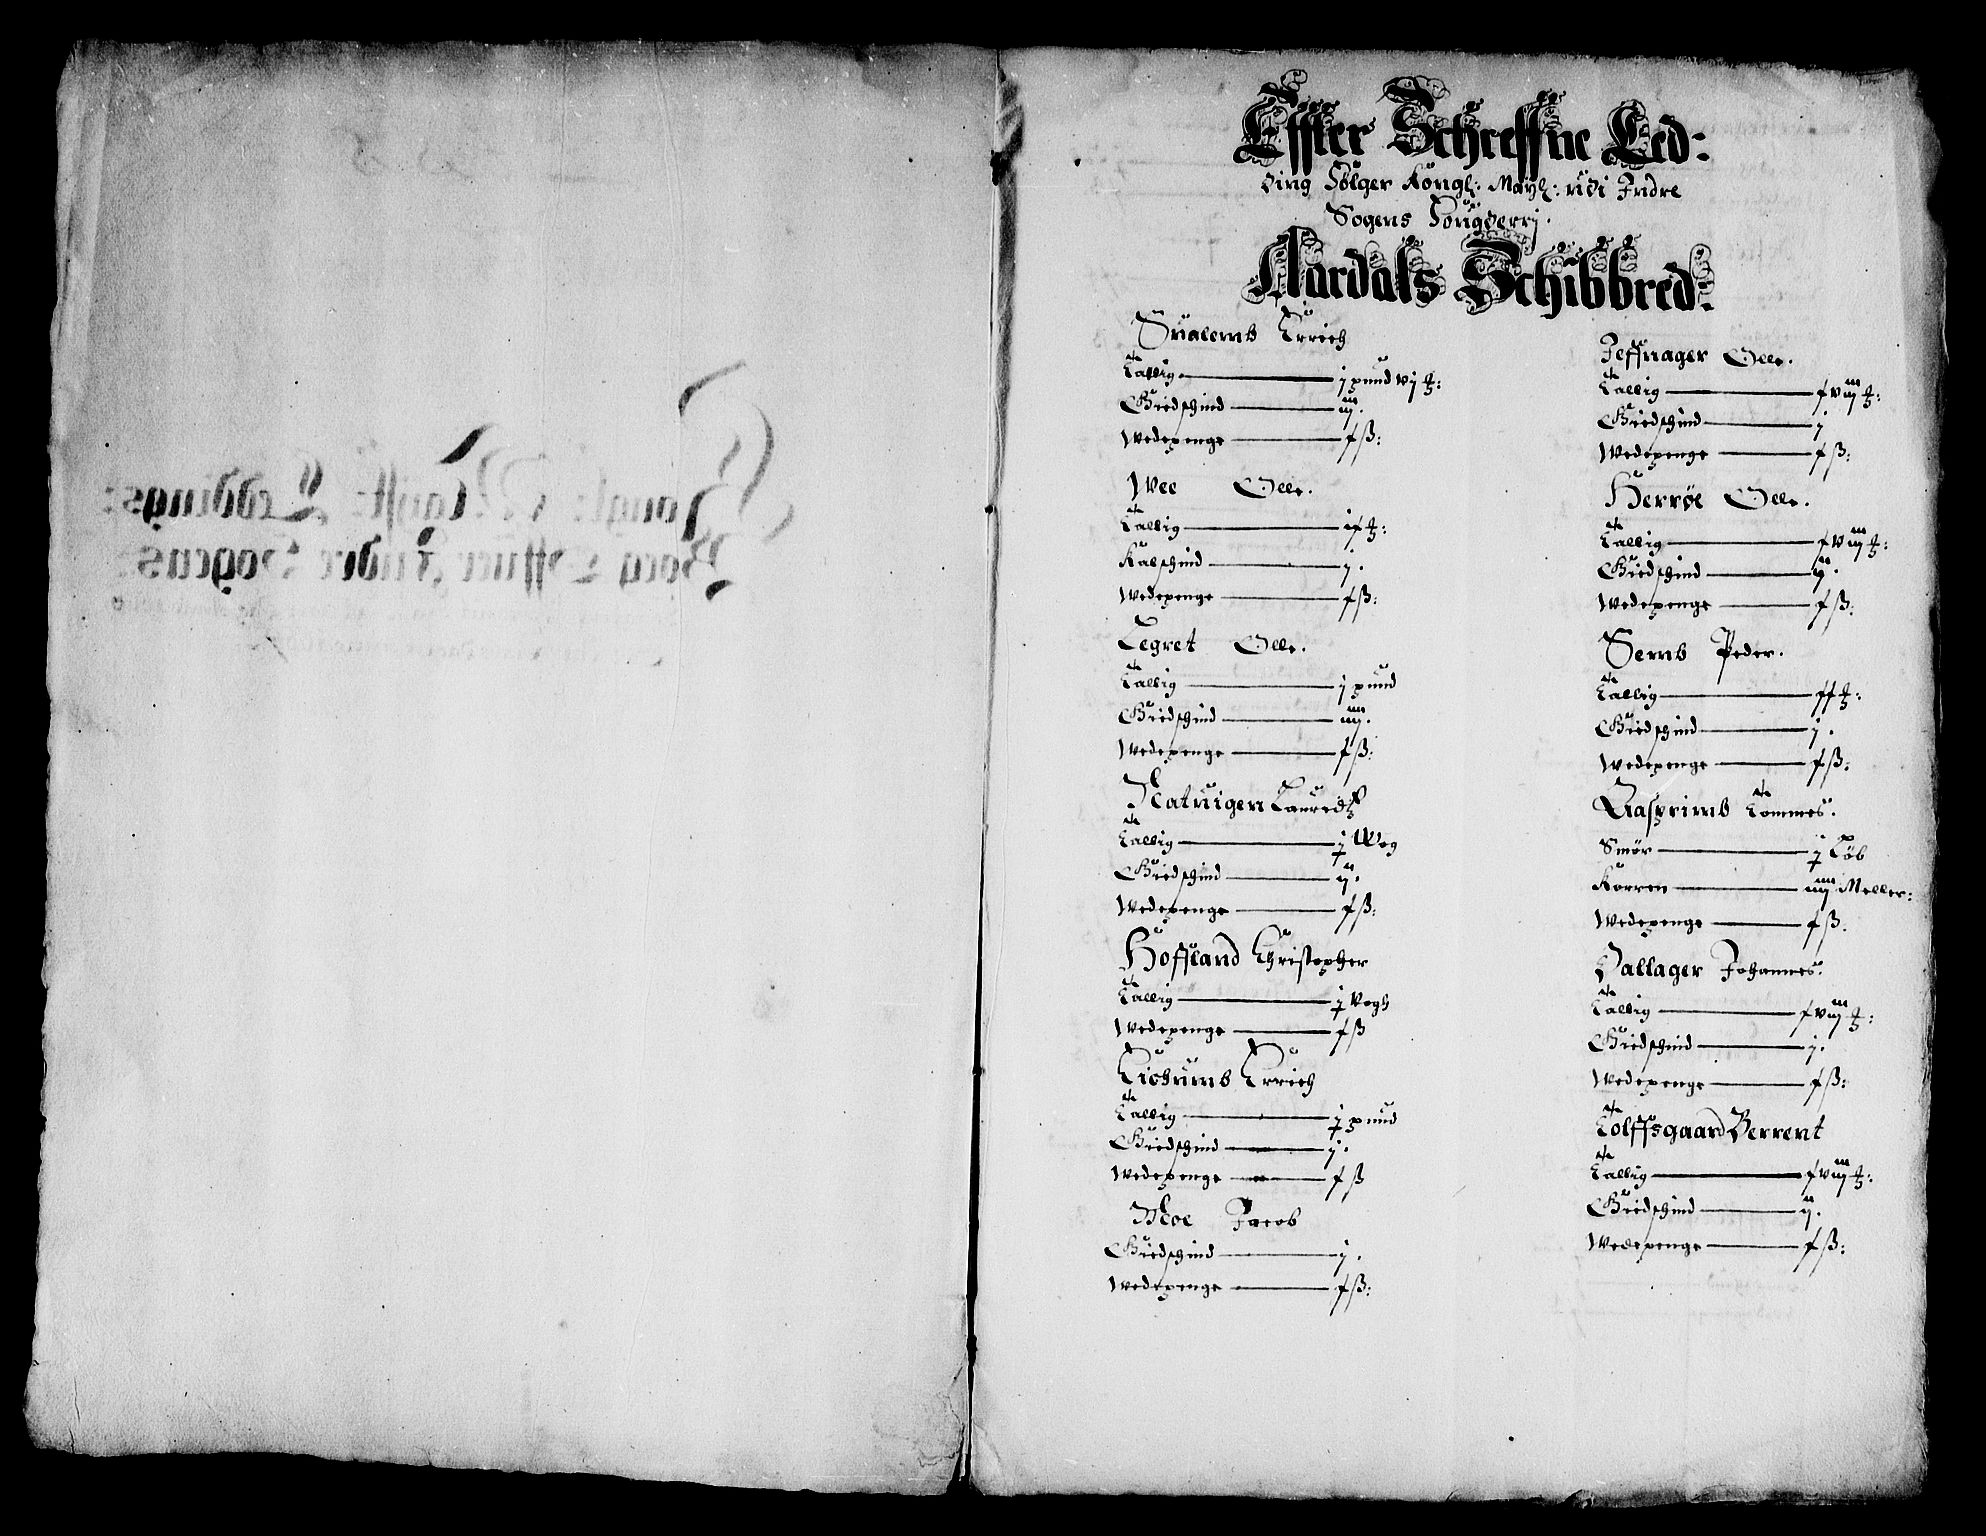 Effter Schreffne Led:
ding Følger Kongl: Mayt: udi Indre
Sogens Fougderrj.
Aardals Schibbred:
Sualemb Errich
Tallig — j pund vj ℔:
Giedschind — iij.
Wedepenge — f ß:
Wee Olle.
Tallig — if ℔:
Kalschind — j.
Wedepenge — f ß:
Legret Olle.
Tallig — j pund
Giedschind — iiij.
Wedepenge — f ß:
Natuigen Lauredtz
Tallig — j Wog
Giedschind — ij.
Wedepenge — f ß:
Hoffland Christopher
Tallig — j Vogh
Wedepenge — f ß
Erich
Tallig — j pund
Giedschind — j.
Wedepenge — f ß
Moe Jacob
Giedschind — j.
Wedepenge — f ß:
Jeffnager Olle.
Tallig — f viij ℔:
Giedschind — j
Wedepenge — f ß:
Herrøe Olle.
Tallig — f viij ℔:
Giedschind — ij.
Wedepenge — f ß:
Semb Peder.
Tallig — ff ℔:
Giedschind — j.
Wedepenge — f ß:
Tommes.
Smør — j Løb
Korren — iiij Meller:
Wedepenge — f ß.
Hallager Johannes.
Tallig — f viij ℔:
Giedschind — j.
Wedepenge — f ß:
Tolffsgaard Berrent
Tallig — f viij ℔:
Giedschind — ij.
Wedepenge — f ß: